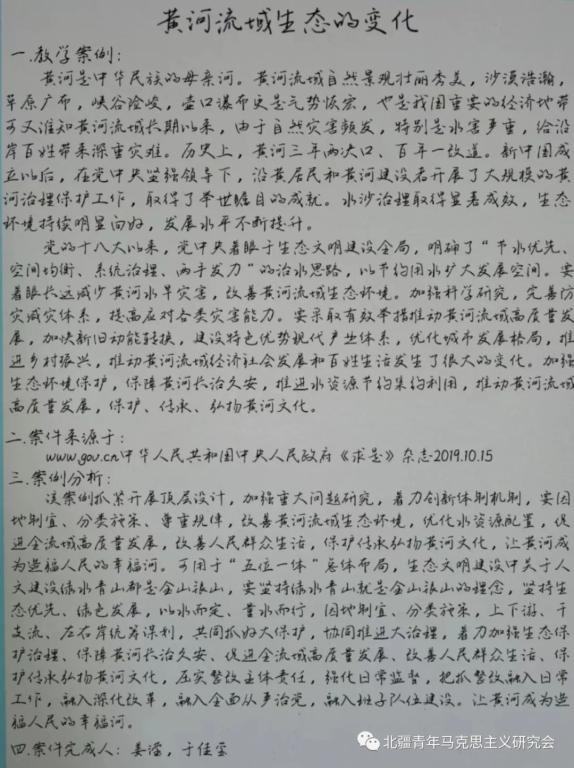 黄河流域生态的变化
一.教学案例:
黄河是中华民族的母亲河。黄河流域自然景观壮丽秀美，沙漠浩瀚，
草原广布，峡谷险峻，壶口瀑布更是气势恢宏，也是我国重要的经济地带
可又谁知黄河流域长期以来，由于自然灾害频发，特别是水害严重，给沿
岸百姓带来深重灾难。历史上，黄河三年两决口、百年一改道。新中国成
立以后，在党中央坚强领导下，沿黄居民和黄河建设者开展了大规模的黄
河治理保护工作，取得了举世瞩目的成就。水沙治理取得显著成效，生态
环境持续明显向好，发展水平不断提升。
党的十八大以来，党中央着眼于生态文明建设全局，明确了“节水优先、
空间均衡、系统治理、两手发力”的治水思路，以节约用水扩大发展空间。要
着眼长远减少黄河水旱灾害，改善黄河流域生态环境。加强科学研究，完善防
灾减灾体系，提高应对各类灾害能力。要采取有效举措推动黄河流域高质量发
展，加快新旧动能转换，建设特色优势现代产业体系，优化城市发展格局，推
进乡村振兴，推动黄河流域经济社会发展和百姓生活发生了很大的变化。加强
生态环境保护，保障黄河长治久安，推进水资源节约集约利用，推动黄河流域
高质量发展，保护、传承、弘扬黄河文化。
二.案件来源于:
www.gov.cn中华人民共和国中央人民政府《求是》杂志2019.10.15
三.案例分析:
该案例抓紧开展顶层设计，加强重大问题研究，着力创新体制机制，要因
地制宜、分类施策、尊重规律，改善黄河流域生态环境，优化水资源配置，促
进全流域高质量发展，改善人民群众生活，保护传承弘扬黄河文化，让黄河成
为造福人民的幸福河。可用于“五位一体”总体布局，生态文明建设中关于人
文建设绿水青山都是金山银山，要坚持绿水青山就是金山银山的理念，坚持生
态优先、绿色发展，以水而定、量水而行，因地制宜、分类施策，上下游、干
支流、左右岸统筹谋划，共同抓好大保护，协同推进大治理，着力加强生态保
护治理、保障黄河长治久安、促进全流域高质量发展、改善人民群众生活、保
护传承弘扬黄河文化，压实整改主体责任，强化日常监督，把抓整改融入日常
工作，融入深化改革，融入全面从严治党，融入班子队伍建设。让黄河成为造
福人民的幸福河。
四.案件完成人:姜滢，于佳玺
北疆青年马克思主义研究会